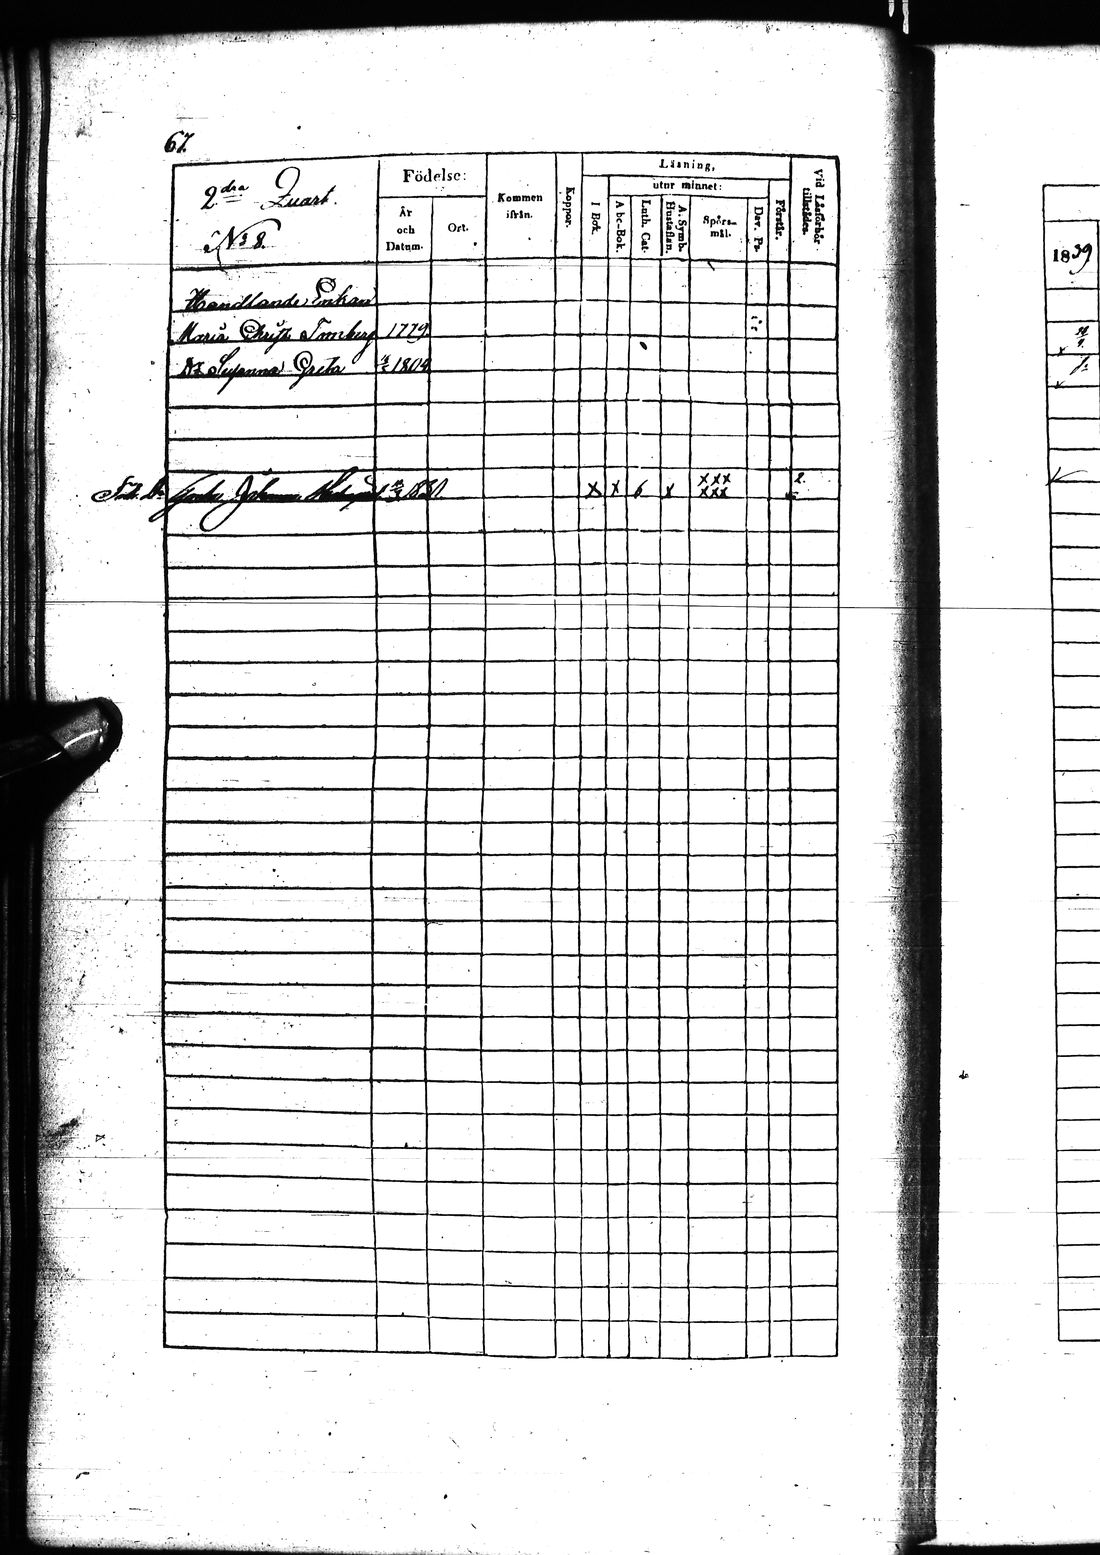 67.
2dra Quart.
No 8.
Födelse:
År
och
Datum.
Ort.
Kommen
ifrån.
Koppor.
Läsning,
I Bok.
utur minnet:
Abc-Bok.
Luth. Cat.
A. Symb.
Hustaflan.
Spörs-
mål.
Dav. Ps.
Förstår.
Vid Läsförhör
tillstädes.
1839
Handlande Enkan
Maria Christ. 1779
Dr Susanna Greta 1804
Johanna
x x 6 x xxx 2
xxx